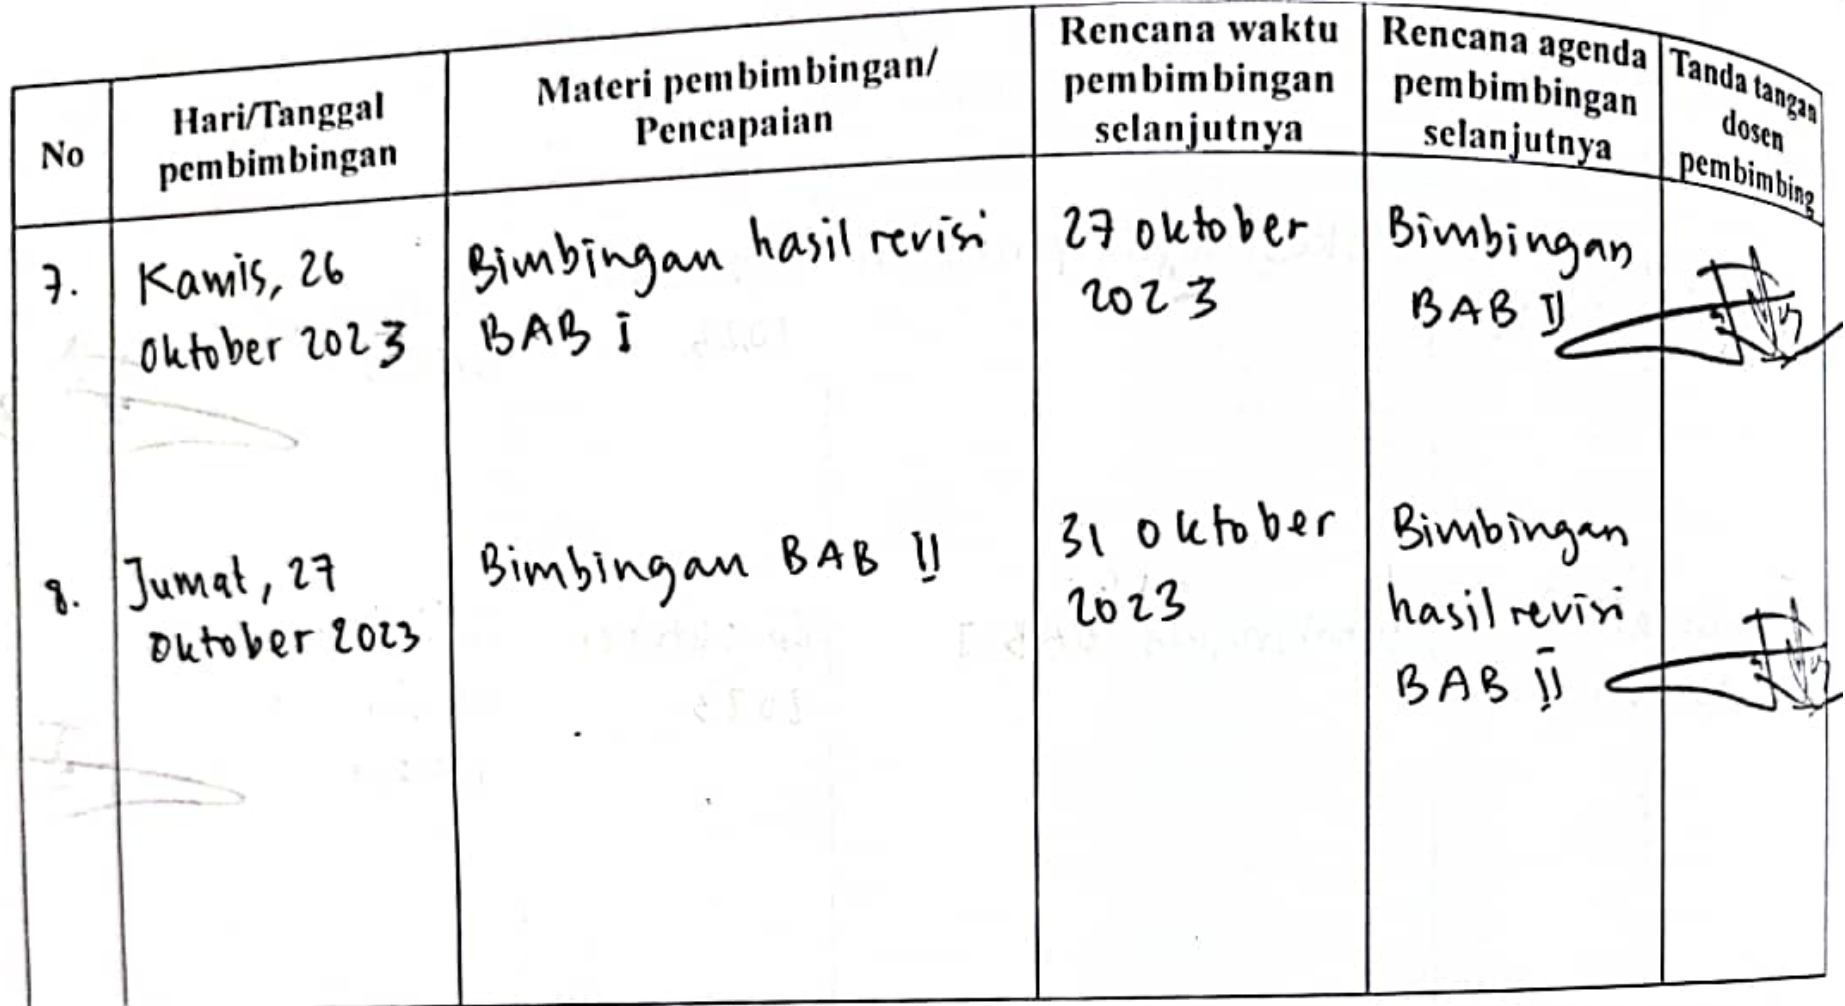 No
Hari/Tanggal
pembimbingan
Materi pembimbingan/
Pencapaian
Rencana waktu
pembimbingan
selanjutnya
Rencana agenda
pembimbingan
selanjutnya
Tanda tangan
dosen
pembimbing
7.
Kamis, 26
Oktober 2023
Bimbingan hasil revisi
BAB I
27 Oktober
2023
Bimbingan
BAB II
8.
Jumat, 27
Oktober 2023
Bimbingan BAB II
31 Oktober
2023
Bimbingan
hasil revisi
BAB II